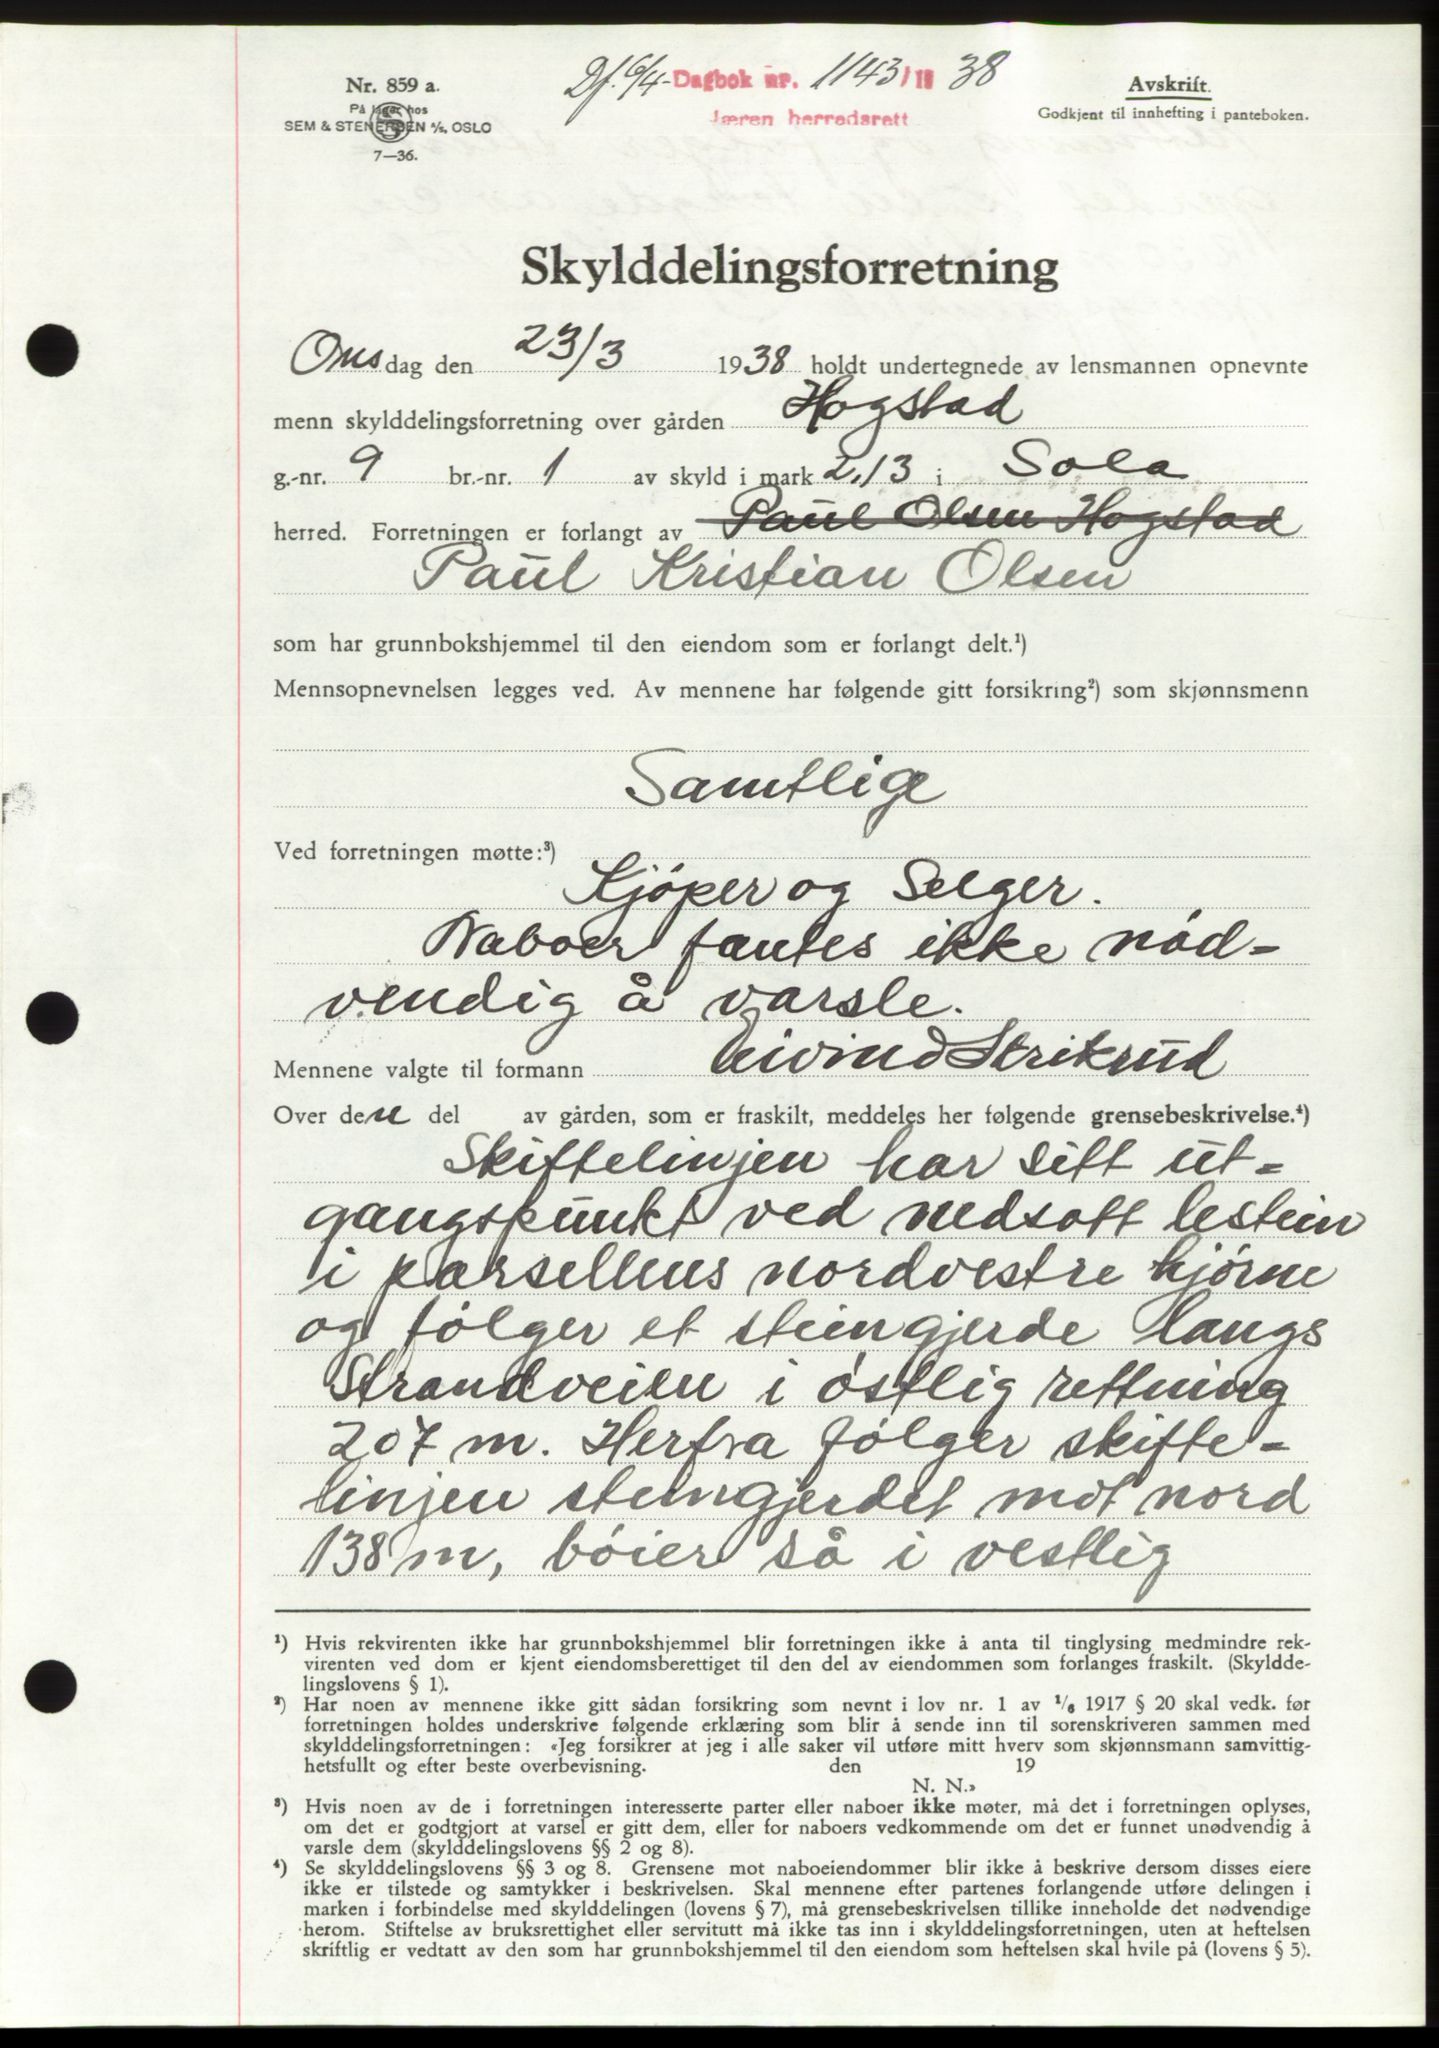 Nr. 859 a.
På lager hos
SEM & STENERSEN A/S, OSLO
7—36.
Df. 6/4- Dagbok nr. 1143/19 38
Jæren herredsrett
Avskrift.
Godkjent til innhefting i panteboken.
Skylddelingsforretning
Onsdag den 23/3 1938 holdt undertegnede av lensmannen opnevnte
menn skylddelingsforretning over gården Hogstad
g.-nr. 9 br.-nr. 1 av skyld i mark 2,13 i Sola
herred. Forretningen er forlangt av Paul Olsen Hogstad
Paul Kristian Olsen
som har grunnbokshjemmel til den eiendom som er forlangt delt.¹)
Mennsopnevnelsen legges ved. Av mennene har følgende gitt forsikring²) som skjønnsmenn
Samtlige
Ved forretningen møtte:³)
Kjøper og Selger.
Naboer fantes ikke nød-
vendig å varsle.
Mennene valgte til formann Eivind Strikrud
Over den del av gården, som er fraskilt, meddeles her følgende grensebeskrivelse.⁴)
Skiftelinjen har sitt ut-
gangspunkt ved nedsatt lestein
i parsellens nordvestre hjørne
og følger et steingjerde langs
Strandveien i østlig rettning
207 m. Herfra følger skifte-
linjen steingjerdet mot nord
138 m, bøier så i vestlig
¹) Hvis rekvirenten ikke har grunnbokshjemmel blir forretningen ikke å anta til tinglysing medmindre rek-
virenten ved dom er kjent eiendomsberettiget til den del av eiendommen som forlanges fraskilt. (Skyldde-
lingslovens § 1).
²) Har noen av mennene ikke gitt sådan forsikring som nevnt i lov nr. 1 av ¹/₆ 1917 § 20 skal vedk. før
forretningen holdes underskrive følgende erklæring som blir å sende inn til sorenskriveren sammen med
skylddelingsforretningen: «Jeg forsikrer at jeg i alle saker vil utføre mitt hverv som skjønnsmann samvittig-
hetsfullt og efter beste overbevisning. den 19
N. N.»
³) Hvis noen av de i forretningen interesserte parter eller naboer ikke møter, må det i forretningen oplyses,
om det er godtgjort at varsel er gitt dem, eller for naboers vedkommende om det er funnet unødvendig å
varsle dem (skylddelingslovens §§ 2 og 8).
⁴) Se skylddelingslovens §§ 3 og 8. Grensene mot naboeiendommer blir ikke å beskrive dersom disses eiere
ikke er tilstede og samtykker i beskrivelsen. Skal mennene efter partenes forlangende utføre delingen i
marken i forbindelse med skylddelingen (lovens § 7), må grensebeskrivelsen tillike inneholde det nødvendige
herom. Stiftelse av bruksrettighet eller servitutt må ikke tas inn i skylddelingsforretningen, uten at heftelsen
skriftlig er vedtatt av den som har grunnbokshjemmel til den eiendom som heftelsen skal hvile på (lovens § 5).